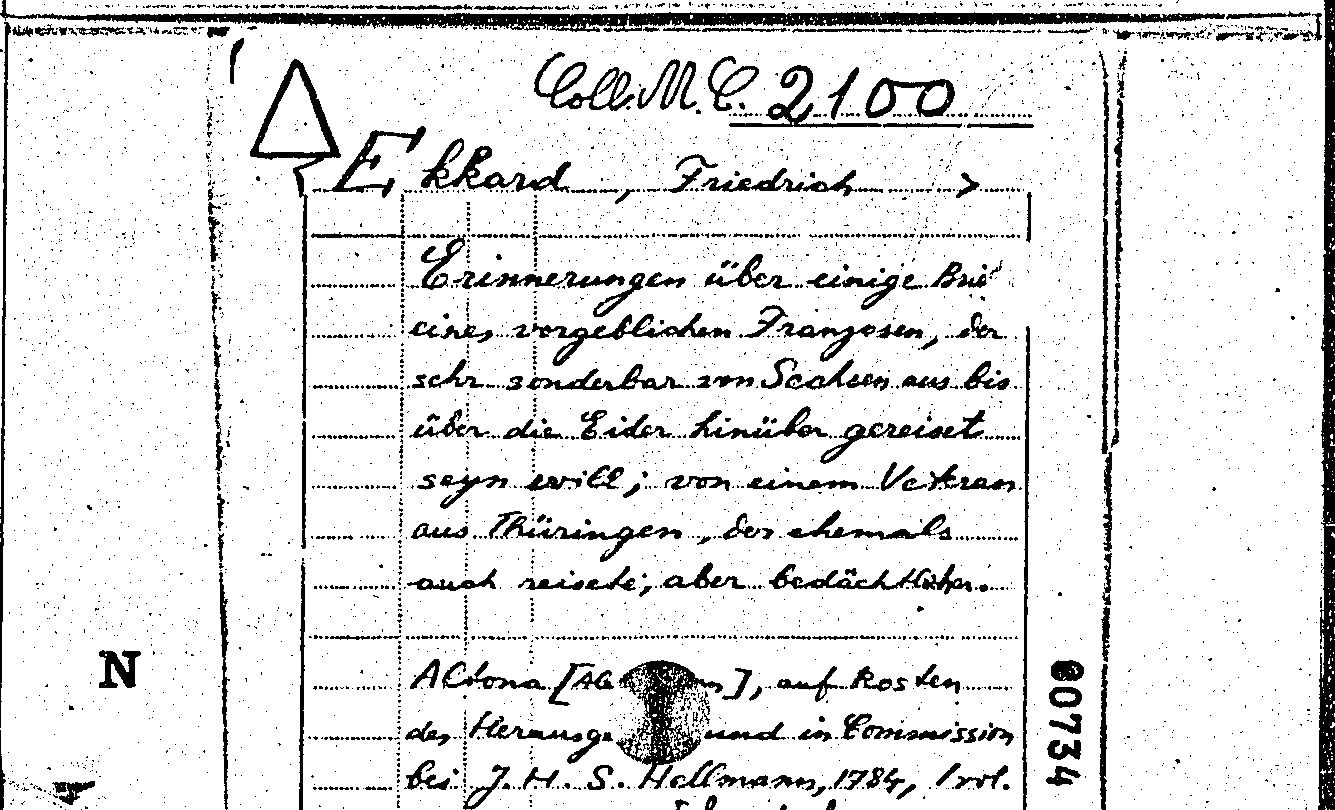 Coll. M. C. 2100
Ekkard, Friedrich >
Erinnerungen über einige
eines vorgeblichen Franzosen, der
sehr sonderbar von Sachsen aus bis
über die Eider hinüber gereiset
seyn will; von einem Veteran
aus Thüringen, der ehemals
auch reisete, aber bedächtlicher.
Altona [ ], auf Kosten
des und in Commission
bei J. H. S. Hellmann, 1784, 1 vol.
N
80734